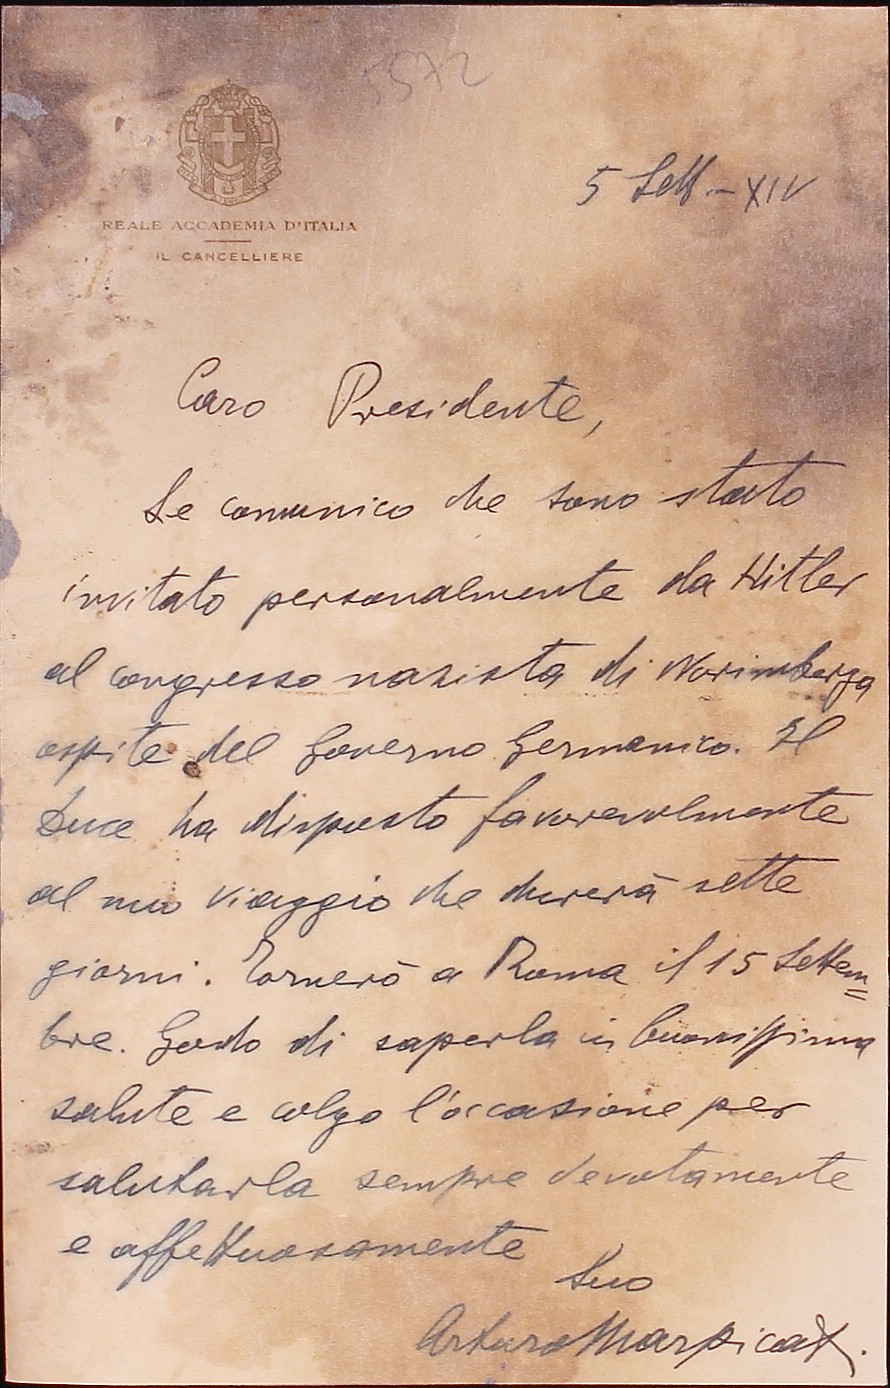 5572
5 Sett. - XIV
REALE ACCADEMIA D'ITALIA
IL CANCELLIERE
Caro Presidente,
Le comunico che sono stato
invitato personalmente da Hitler
al congresso nazista di Norimberga
ospite del Governo Germanico. Il
Duce ha disposto favorevolmente
al mio viaggio che durerà sette
giorni. Tornerò a Roma il 15 Settem=
bre. Godo di saperla in buonissima
salute e colgo l'occasione per
salutarla sempre devotamente
e affettuosamente
Suo
Arturo Marpicati.